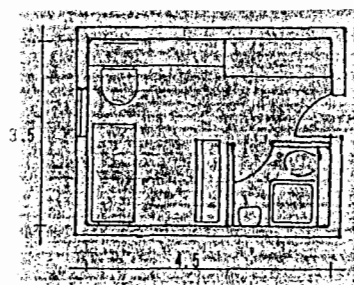 3.5
4.5